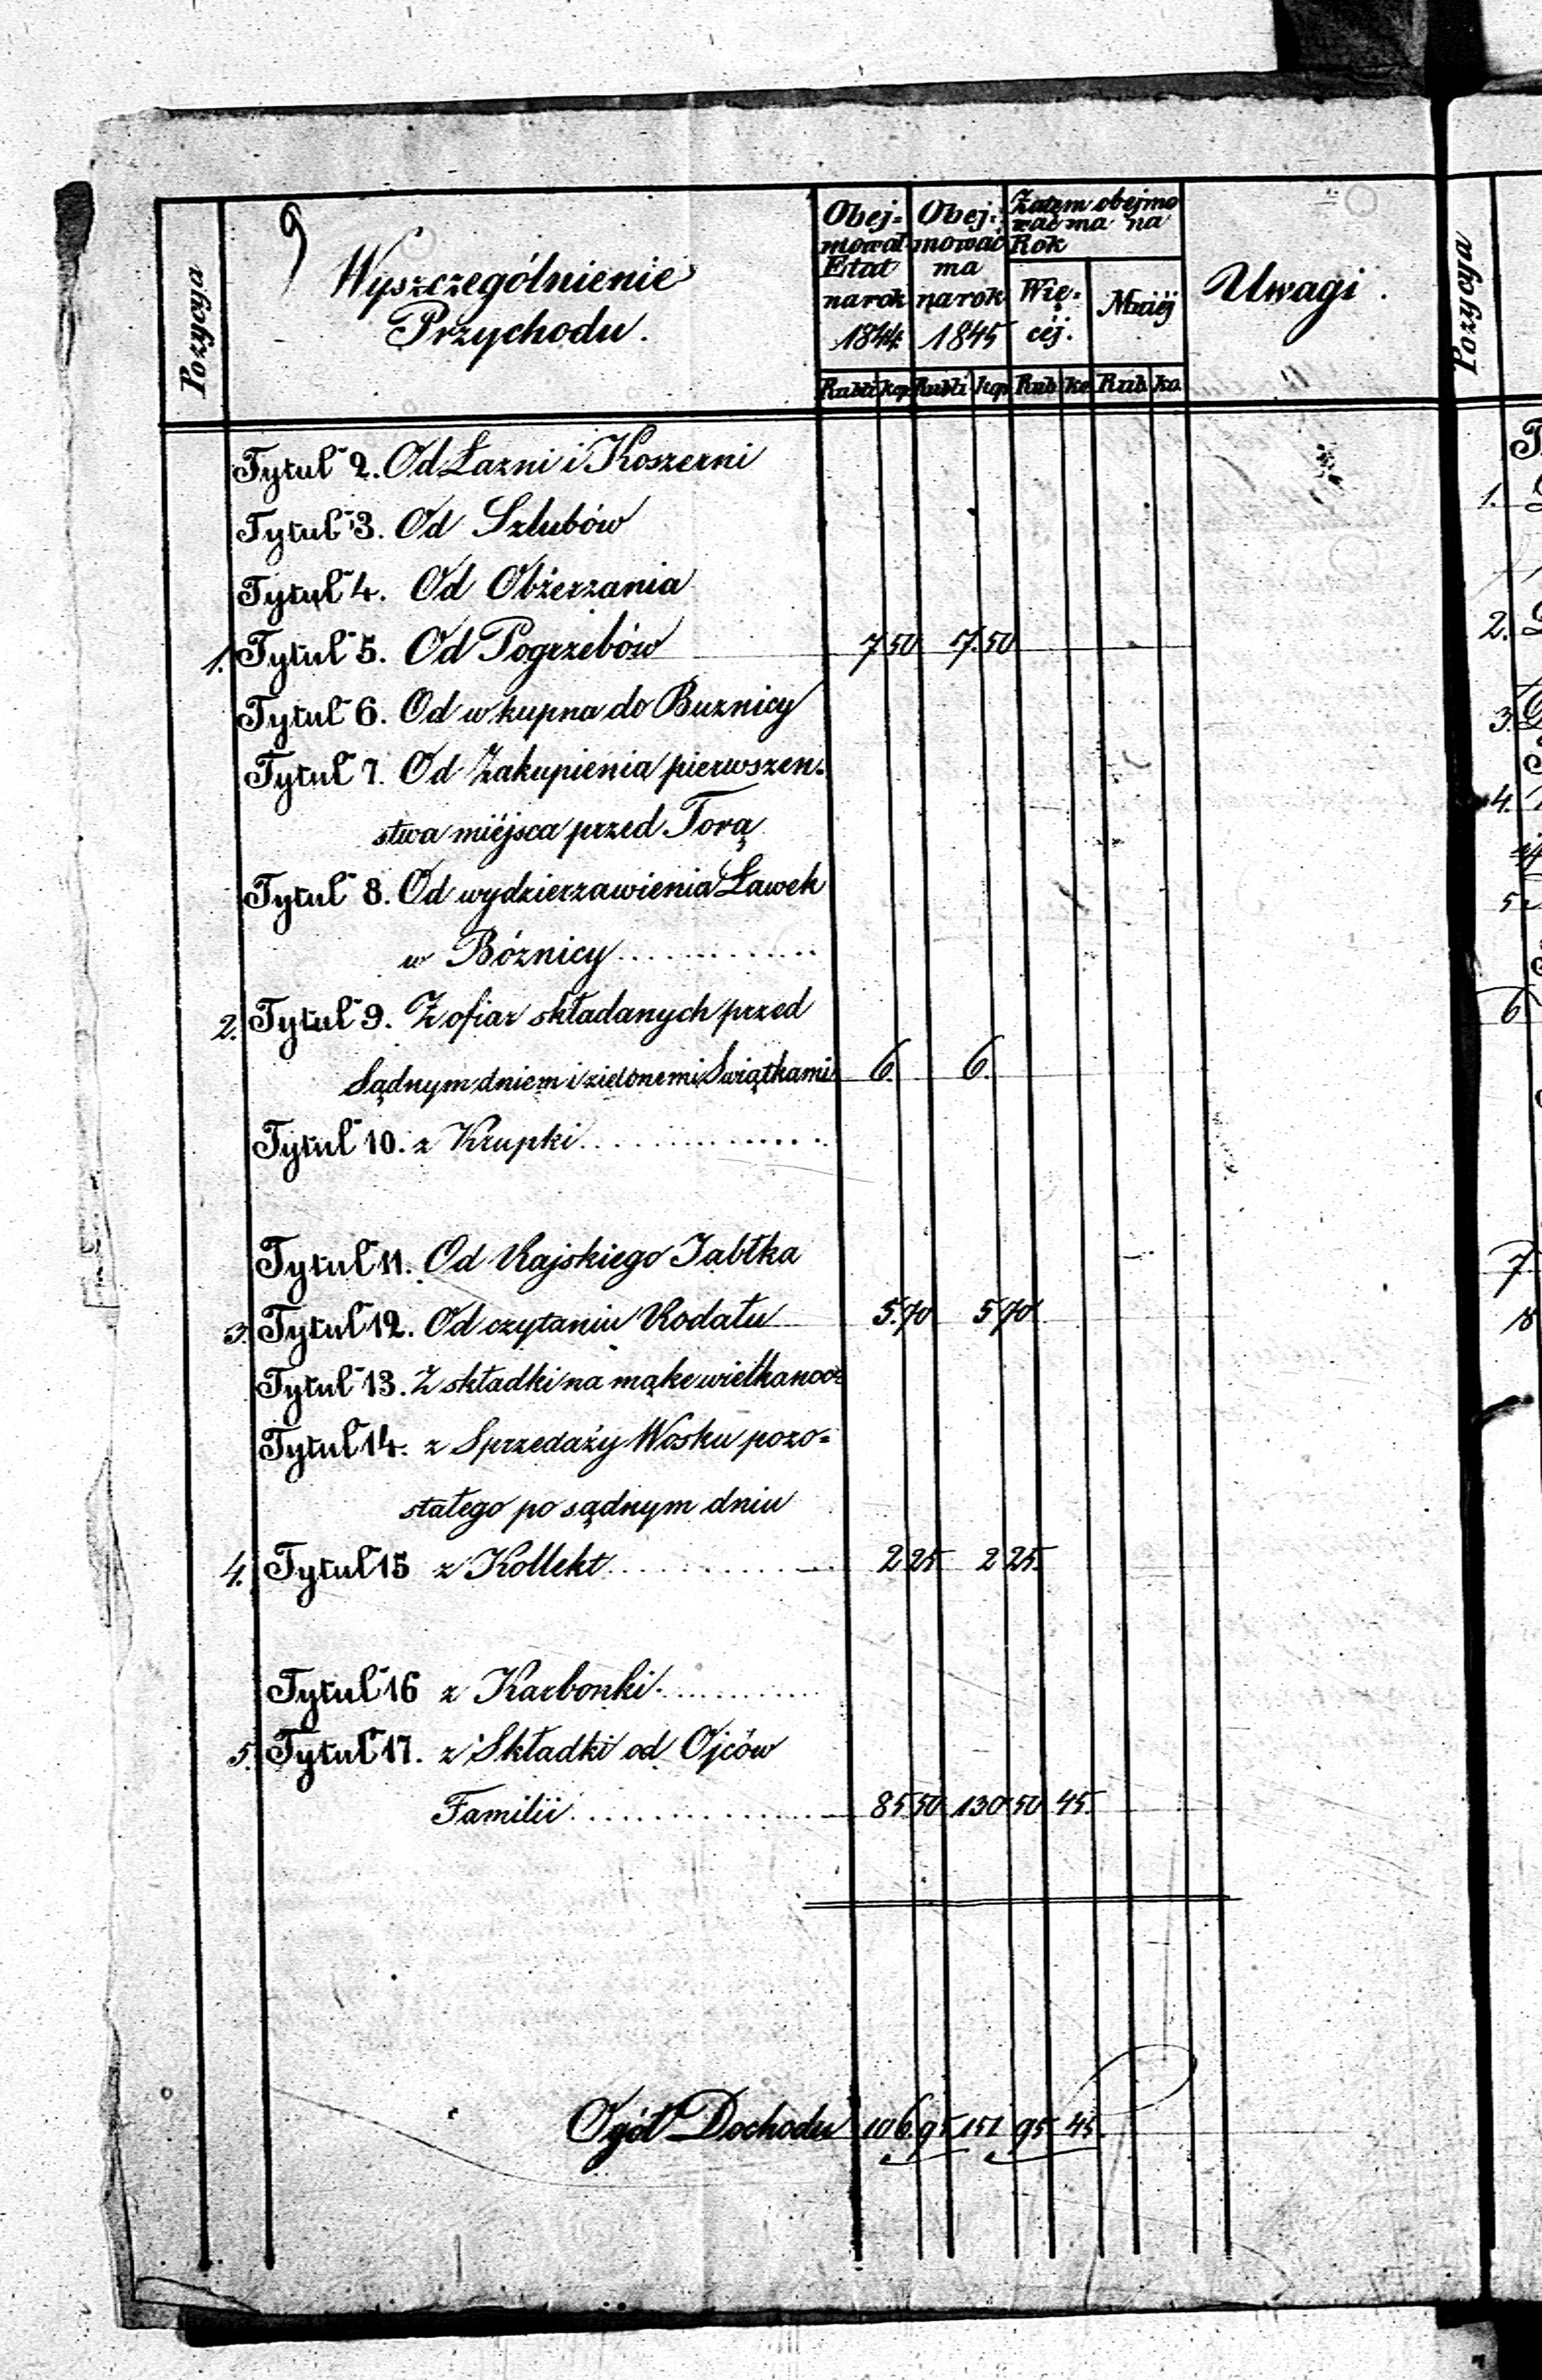 Pozycya
Wyszczególnienie
Przychodu.
Obej=
mował
Etat
na rok
1844.
Obej=
mować
ma
na rok
1845
Zatem obejmo
wać ma na
Rok
Wię=
céj.
Mniéj
Uwagi.
Rubli kop Rubli kop Rub ko Rub ko
Tytuł 2. Od Łazni i Koszerni
Tytuł 3. Od Szlubów
Tytuł 4. Od Obżerzania
1. Tytuł 5. Od Pogrzebów 7 50 7. 50
Tytuł 6. Od wkupna do Buznicy
Tytuł 7. Od Zakupienia pierwszen=
stwa miéjsca przed Torą
Tytuł 8. Od wydzierzawienia Ławek
w Bóznicy
2. Tytuł 9. Z ofiar składanych przed
Sądnym dniem i zielonemi Swiątkami 6. 6.
Tytuł 10. z Krupki
Tytuł 11. Od Rajskiego Jabłka
3. Tytuł 12. Od czytaniu Rodału 5. 70 5 70
Tytuł 13. Z składki na mąke wielkanoc
Tytuł 14. z Sprzedaży Wosku pozo=
stałego po sądnym dniu
4. Tytuł 15 z Kollekt 2 25 2 25.
Tytuł 16 z Karbonki
5. Tytuł 17. z Składki od Ojców
Familii 85 50 130 50 45.
Ogół Dochodu 106. 95 151 95 45.
Pozycya
1.
2.
3.
4.
5
6
7
8